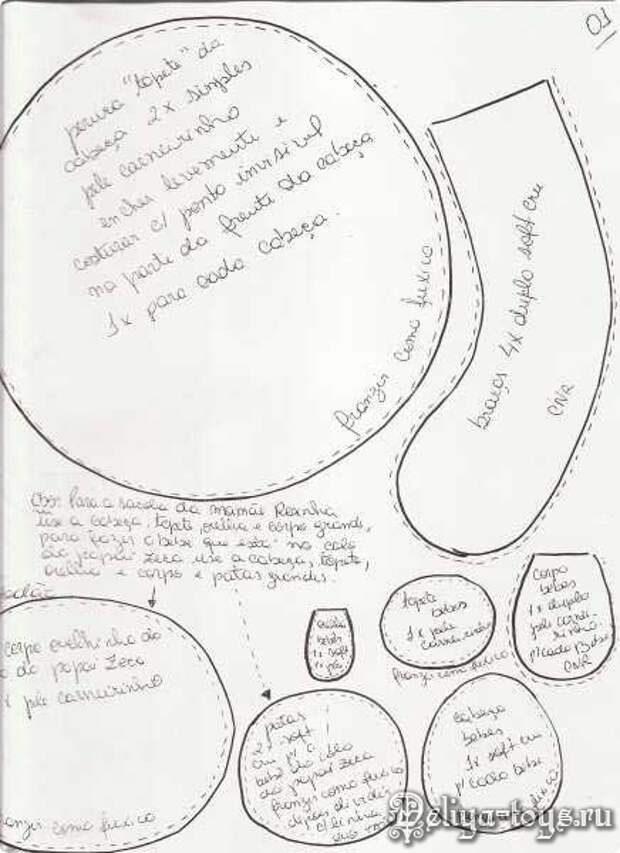 01
peruca "topete" da
cabeça 2x simples
pele carneirinho
encher levemente e
costurar c/ ponto invisível
na parte da frente da cabeça
1x para cada cabeça.
franzir como fuxico
braços 4x duplo soft cru
Obs: Para a sacola da mamãe Rosinha
use a cabeça, topete, orelha e corpo grande,
para fazer o bebe que está no colo
do papai Zeca use a cabeça, topete,
orelha e corpo e patas grandes.
corpo ovelhinha do
do papai Zeca
pele carneirinho
franzir como fuxico
bebes
1x soft
topete
bebes
1x pele
carneirinho
franzir como fuxico
corpo
bebes
1x duplo
pele carnei-
rinho
p/ cada Bebe
patas
2x soft
cru p/ o
bebê do colo
do papai Zeca
franzir como fuxico
depois dividir
c/ linha
cabeça
bebes
1x soft cru
p/ cada bebe
fuxico
Peliya-toys.ru